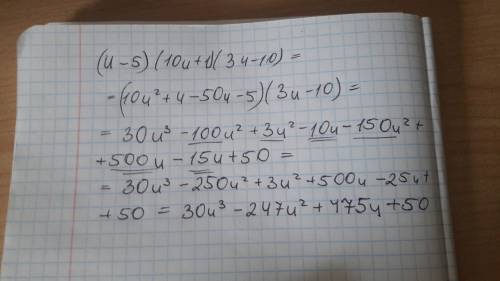 (u-5)(10u+1)(3u-10)=
-(10u²+u-50u-5)(3u-10)=
= 30u³-100u²+3u²-10u-150u²+
+500u-15u+50=
= 30u³-250u²+3u²+500u-25u+
+50 = 30u³-247u²+475u+50